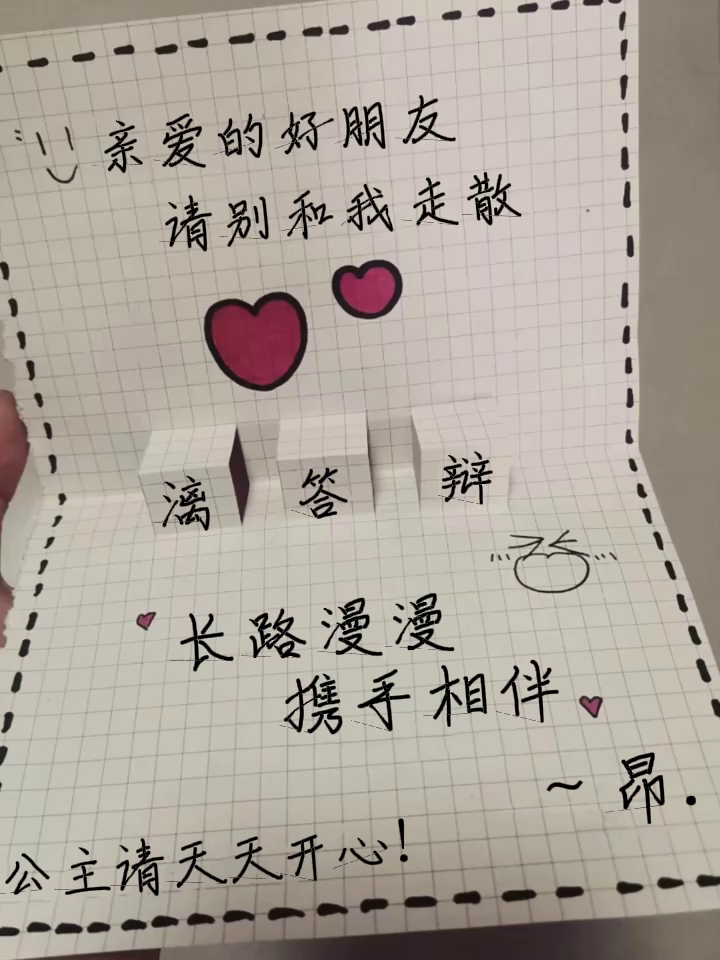 亲爱的好朋友
请别和我走散
漓答辩
长路漫漫
携手相伴
~昂.
公主请天天开心!